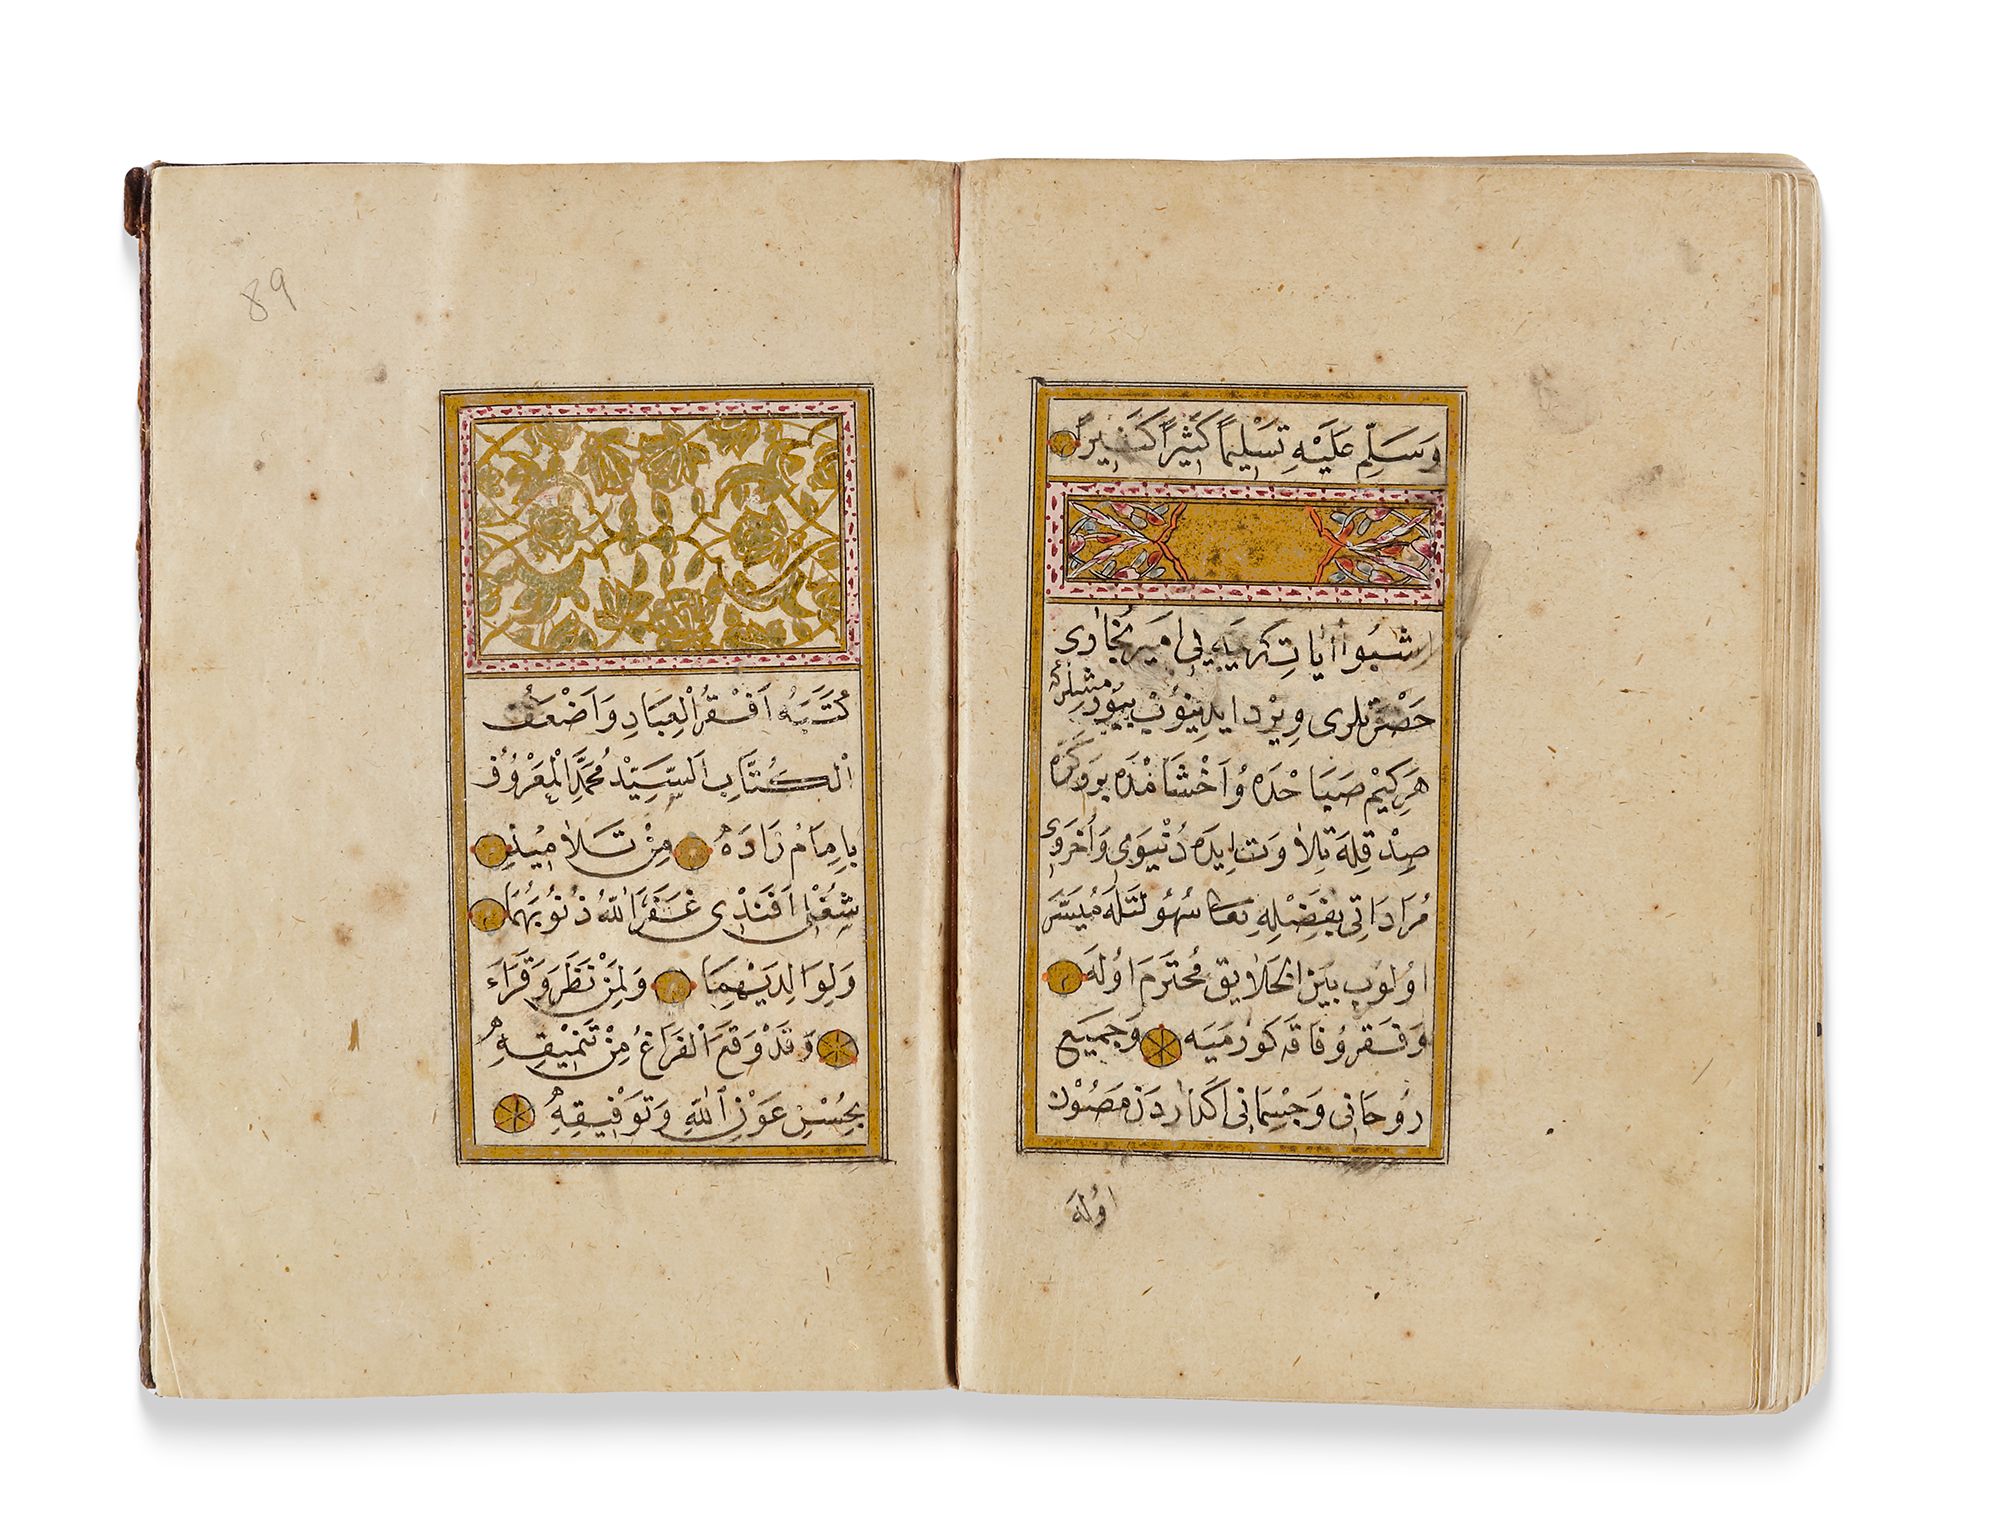 وَسَلِّمْ عَلَيْهِ تَسْلِيمًا كَثِيرًا كَثِيرًا
اشبُو اٰيَاتِ كَرِيمَه يِى اَمِير بُخَارِى
حَضْرَتلَرِى وِيرْد ايدِينُوبْ بُيُورْمِشلَرْكه
هَركِيمْ صَبَاحْدَه وُاَخْشَامْدَه بِرَوكَرَّه
صِدْقِلَه تِلَاوَت ايدَه دُنْيَوِى وَاُخْرَوِى
مُرَادَاتِى بِفَضْلِهِ تعا سُهُولَتلَه مُيَسَّر
اوُلوُب بَيْنَ الخَلَايِق مُحْتَرَمْ اوُلَه
وَفَقْروُفَاقَه كورْمَيَه وَجَمِيع
رُوحَانِى وَجِسْمَانِى اَكدَارْدَنْ مَصُوْن
اوُلَه
89
كَتَبَهُ اَفْقَرُ الْعِبَادِ وَاَضْعَفُ
الْكُتَّابِ اَلسَّيِّدْ مُحَمَّدْ الْمَعْرُوف
بِاِمَامْ زَادَه مِنْ تَلَامِيذِ
شُغْلِى اَفَنْدِى غَفَرَ اللّٰهُ ذُنُوبَهُمَا
وَلِوَالِدَيْهِمَا وَلِمَنْ نَظَرَ وَقَرَاءَ
وَقَدْ وَقَعَ الْفَرَاغُ مِنْ تَنْمِيْقِهِ
بِحُسْنِ عَوْنِ اللّٰهِ وَتَوْفِيقِهِ